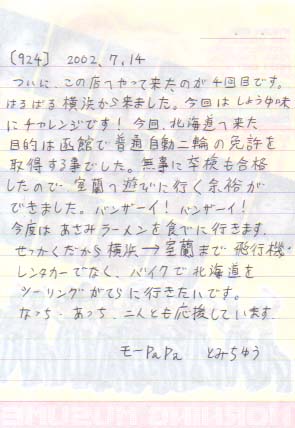 〔924〕 2002.7.14
ついに、この店へやって来たのが4回目です。
はるばる横浜から来ました。今回はしょうゆ味
にチャレンジです！今回、北海道へ来た
目的は函館で普通自動二輪の免許を
取得する事でした。無事に卒検も合格
したので室蘭へ遊びに行く余裕が
できました。バンザーイ！バンザーイ！
今度はあさみラーメンを食べに行きます。
せっかくだから横浜→室蘭まで飛行機・
レンタカーでなく、バイクで北海道を
ツーリングがてらに行きたいです。
なっち・あっち、二人とも応援しています。
モーPaPa とみちゅう
MORNING MUSUME